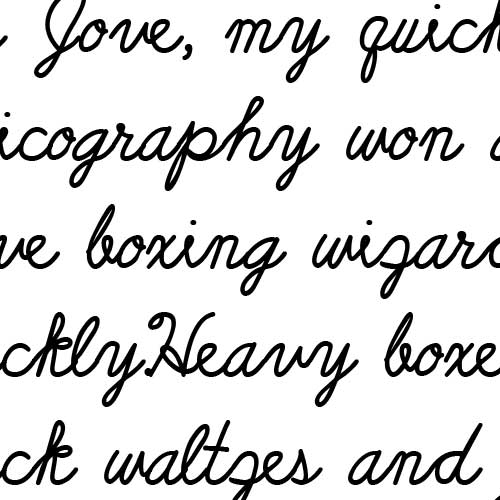 Jove, my quick
icography won
ve boxing wizard
ckly.Heavy boxe
ck waltzes and